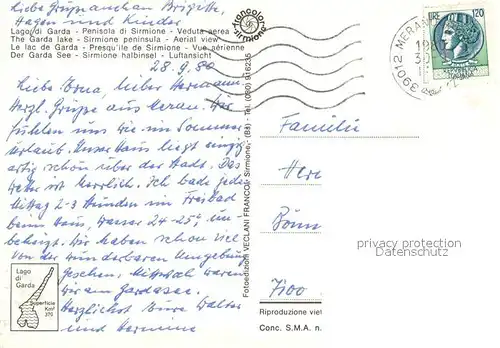 Liebe Grüße auch an Brigitte,
Hagen und Kinder
Lago di Garda - Penisola di Sirmione - Veduta aerea
The Garda lake - Sirmione peninsula - Aerial view
Le lac de Garda - Presqu'ile de Sirmione - Vue aérienne
Der Garda See - Sirmione halbinsel - Luftansicht
francolor
Sirmione
LIRE 120
39012 MERA
28.9.80
Liebe Erna, lieber Hermann
Herzl. Grüße aus Meran. Wir
fühlen uns wie im Sommer
urlaub. Unser Haus liegt einzig
artig schön über der Stadt. Das
Wetter ist herrlich. Ich bade jeden
Mittag 2-3 Stunden im Freibad
beim Haus, Wasser 24-25°, un
Wir haben schon viel
von der wunderbaren Umgebung
gesehen. Mittwoch waren
wir am Gardasee.
Herzlichst Eure Walter
und Hermine
Lago
di
Garda
Superficie
Km²
370
Fotoedizioni VECLANI FRANCO - Sirmione - (Bs) - Tel. (030) 916235
Familie
Herm
Bönn
7100
privacy protection
Datenschutz
Riproduzione viet
Conc. S.M.A. n.